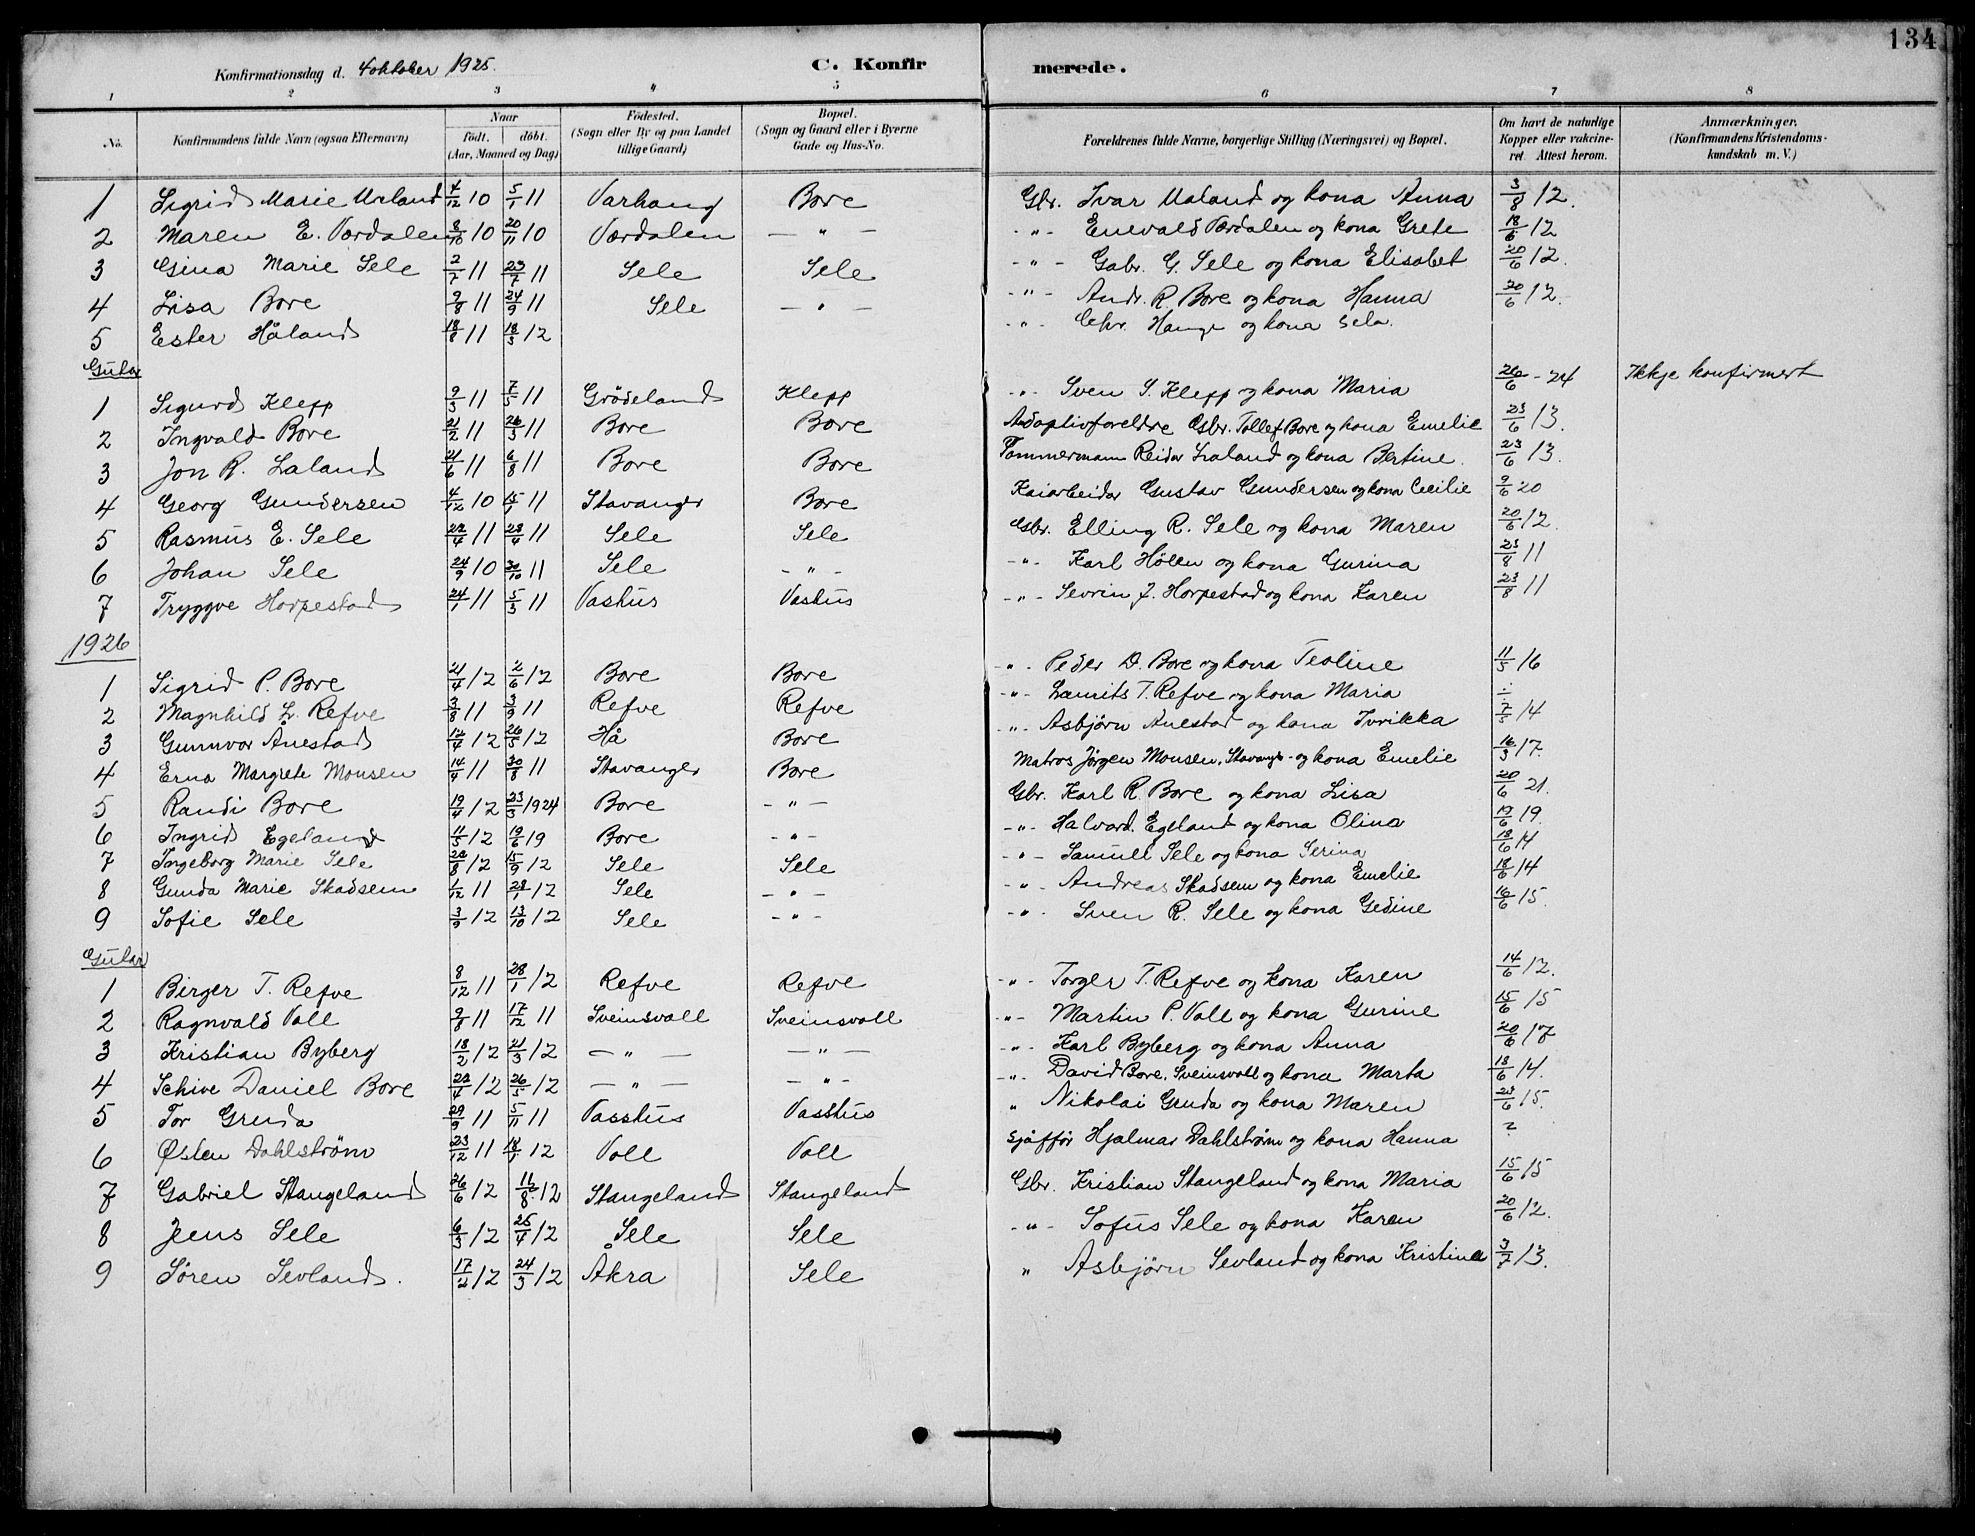 134
Konfirmationsdag d. 4 oktober 1925. C. Konfirmerede.
1 2 3 4 5 6 7 8
No. Konfirmandens fulde Navn (ogsaa Efternavn) Naar født. døbt. (Aar, Maaned og Dag) Fødested. (Sogn eller By og paa Landet tillige Gaard) Bopæl. (Sogn og Gaard eller i Byerne Gade og Hus-No. Forældrenes fulde Navne, borgerlige Stilling (Næringsvei) og Bopæl. Om havt de naturlige Kopper eller vakcineret. Attest herom. Anmærkninger. (Konfirmandens Kristendomskundskab m. V.)
1 Sigrid Marie 4/12 10 5/1 11 Varhaug Bore Gbr. Ivar og kona Anna 3/8 12.
2 Maren E. Værdalen 8/10 10 20/11 10 Værdalen — " — - " - Enevald Værdalen og kona Grete 18/6 12
3 Gina Marie Sele 2/7 11 23/7 11 Sele Sele - " - Gabr. G. Sele og kona Elisabet 20/6 12.
4 Lisa Bore 9/8 11 24/9 11 Sele — " — - " - Andr. R. Bore og kona Hanna 20/6 12.
5 Ester Håland 18/8 11 18/3 12 - " - Chr. Hauge og kona Sela.
Gutar
1 Sigurd Klepp 9/3 11 7/5 11 Grødeland Klepp - " - Sven S. Klepp og kona Maria 26/6 - 24 Ikkje konfirmert
2 Ingvald Bore 21/2 11 26/3 11 Bore Bore Adoptivforeldre Gbr. Tollef Bore og kona Emelie 23/6 13.
3 Jon R. Laland 21/6 11 6/8 11 Bore Bore Tømmermann Reidar Laland og kona Bertine. 23/6 13.
4 Georg Gundersen 4/12 10 15/1 11 Stavanger Bore Kaiarbeider Gustav Gundersen og kona Cecilie 9/6 20
5 Rasmus E. Sele 22/4 11 23/4 11 Sele Sele Gbr. Elling R. Sele og kona Maren 20/6 12.
6 Johan Sele 24/9 10 30/10 11 Sele - " - - " - Karl Hølen og kona Gurina 23/8 11
7 Tryggve Horpestad 24/1 11 5/3 11 Vashus Vashus - " - Sevrin J. Horpestad og kona Karen 23/8 11
1926
1 Sigrid P. Bore 21/4 12 2/6 12 Bore Bore - " - Peder D. Bore og kona Teoline 11/5 16
2 Magnhild L. Refve 3/8 11 3/9 11 Refve Refve - " - Laurits T. Refve og kona Maria
3 Gunnvor Anestad 12/4 12 26/5 12 Hå Bore - " - Asbjørn Anestad og kona Jvrikka 7/5 14
4 Erna Margrete Monsen 14/4 11 30/8 11 Stavanger Bore Matros Jørgen Monsen, Stavanger - og kona Emelie 16/3 17.
5 Randi Bore 19/4 12 23/3 1924 Bore - " - Gbr. Karl R. Bore og kona Lisa 20/6 21.
6 Ingrid Egeland 11/5 12 19/6 19 Bore - " - - " - Halvard Egeland og kona Olina 19/6 19.
7 Ingeborg Marie Sele 22/8 12 15/9 12 Sele Sele - " - Samuel Sele og kona Serina 18/6 14
8 Gunda Marie Skadsem 1/12 11 28/1 12 Sele - " - - " - Andreas Skadsem og kona Emelie 18/6 14
9 Sofie Sele 3/9 12 13/10 12 Sele - " - - " - Sven R. Sele og kona Gedine 16/6 15.
Gutar
1 Birger T. Refve 8/12 11 28/1 12 Refve Refve - " - Torger T. Refve og kona Karen 14/6 12.
2 Ragnvald Voll 9/8 11 17/12 11 Sveinsvoll Sveinsvoll - " - Martin P. Voll og kona Gurine 15/6 15
3 Kristian Byberg 18/2 12 21/3 12 — " — — " — - " - Karl Byberg og kona Anna 20/6 17
4 Schive Daniel Bore 22/4 12 26/5 12 — " — — " - - " - David Bore, Sveinsvoll og kona Marta 18/6 14.
5 Tor Gruda 29/9 11 5/11 11 Vasshus Vasshus " Nikolai Gruda og kona Maren 23/6 15.
6 Østen Dahlstrøm 23/12 11 18/1 12 Voll Voll Sjåffør Hjalmar Dahlstrøm og kona Hanna ?
7 Gabriel Stangeland 26/6 12 11/8 12 Stangeland Stangeland Gbr. Kristian Stangeland og kona Maria 15/6 15
8 Jens Sele 6/3 12 25/4 12 Sele Sele - " - Sofus Sele og kona Karen 20/6 12.
9 Søren Sevland. 17/2 12 24/3 12 Åkra Sele " Asbjørn Sevland og kona Kristina 3/7 13.